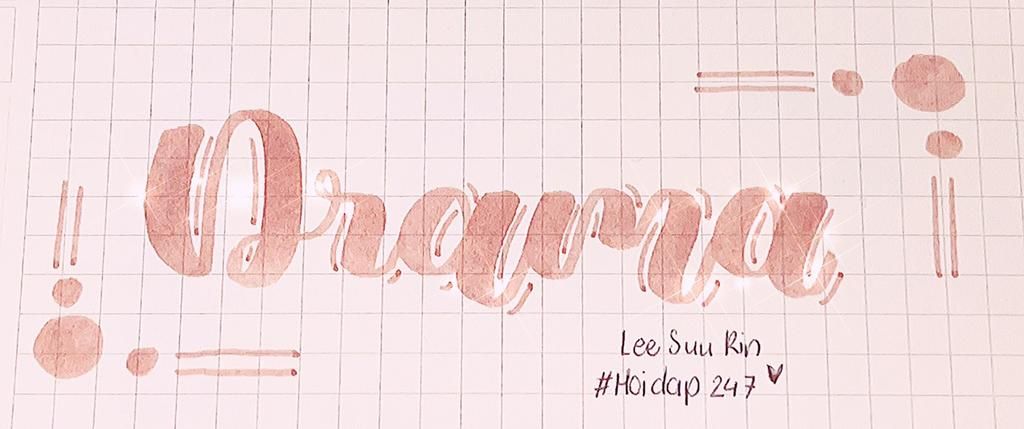 Drama
Lee Suu Rin
#Hoidap 247